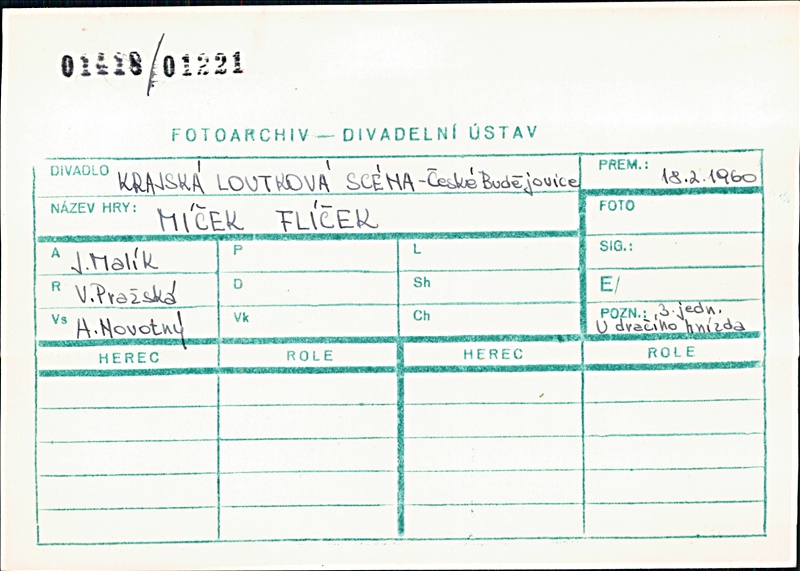 01418/01221
FOTOARCHIV — DIVADELNÍ ÚSTAV
DIVADLO KRAJSKÁ LOUTKOVÁ SCÉNA - České Budějovice
PREM.: 18.2.1960
NÁZEV HRY: MÍČEK FLÍČEK
FOTO
A J. Malík
P
L
SIG.:
R V. Pražská
D
Sh
E/
Vs A. Novotný
Vk
Ch
POZN.: 3. jedn.
U dračího hnízda
HEREC ROLE HEREC ROLE